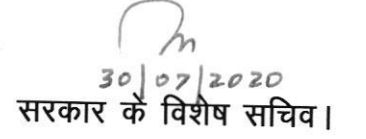 30/07/2020
सरकार के विशेष सचिव।